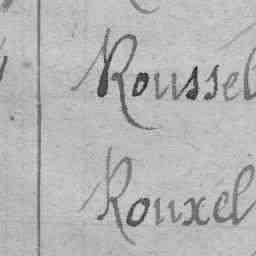 Roussel
Rouxel